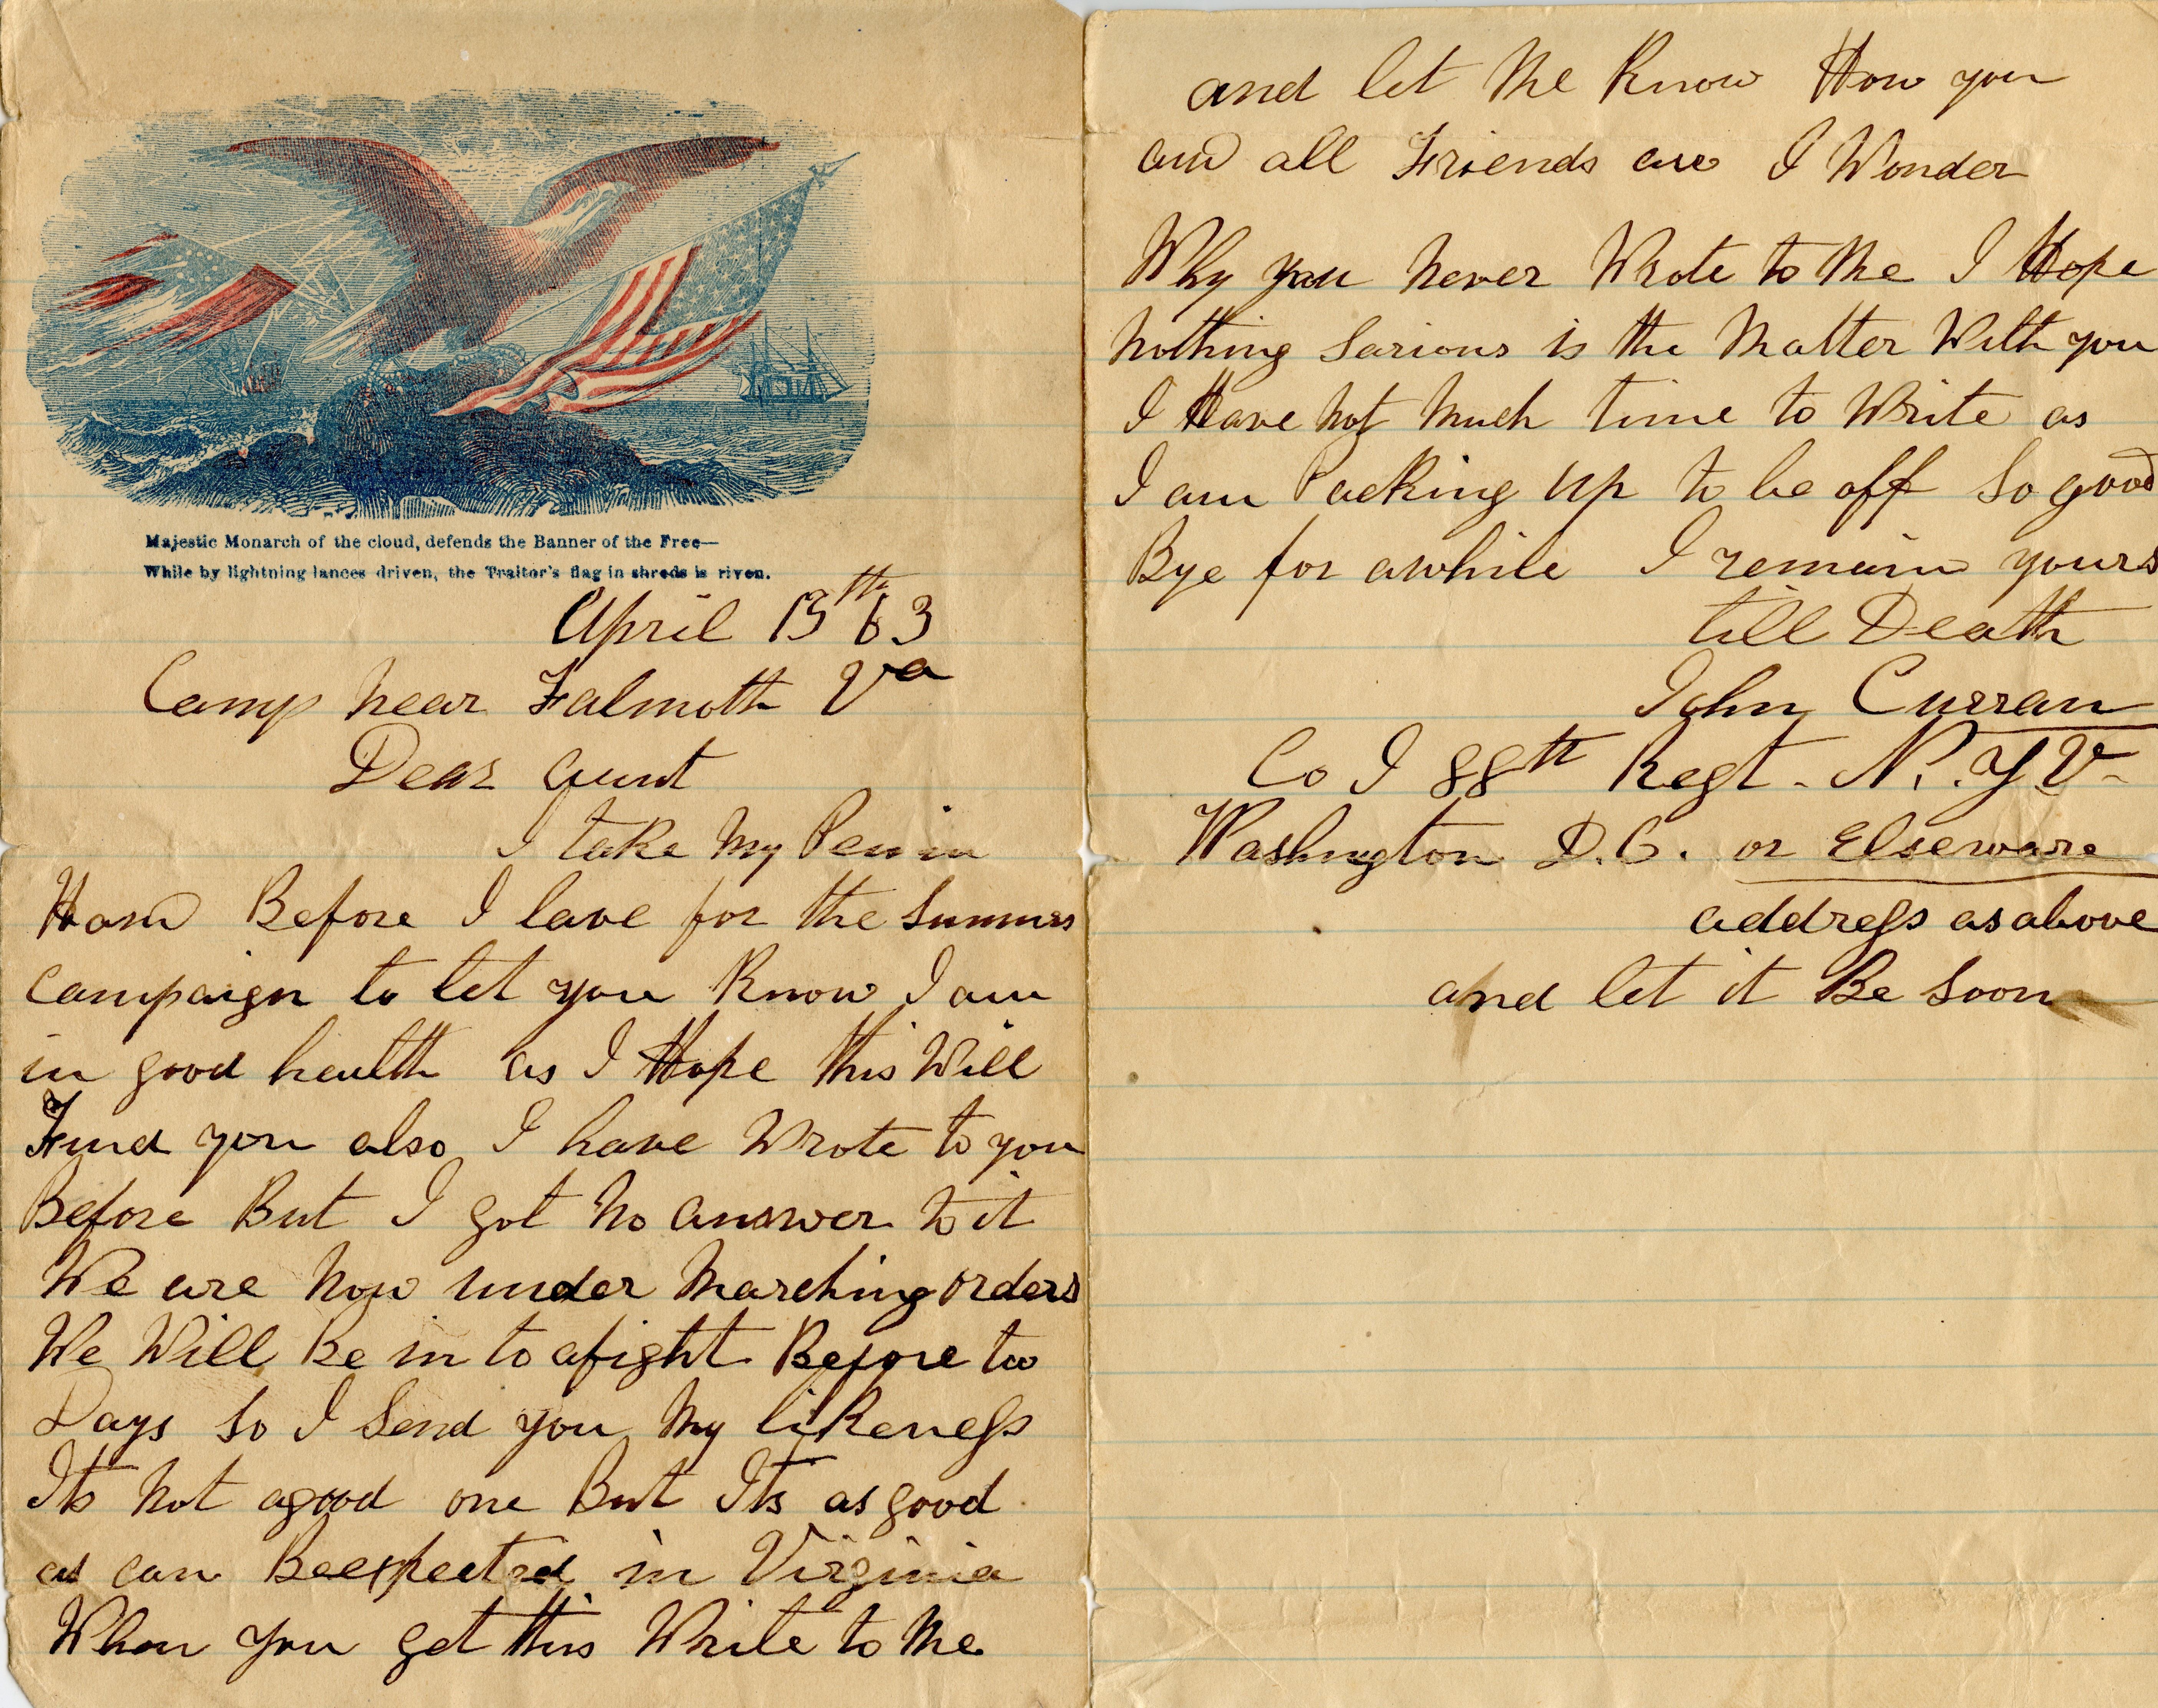 Majestic Monarch of the cloud, defends the Banner of the Free—
While by lightning lances driven, the Traitor's flag in shreds is riven.
April 13th 63
Camp near Falmoth Va
Dear aunt
I take my Pen in
Hand Before I lave for the Summer
campaign to let you Know I am
in good health as I Hope this Will
Find you also I have Wrote to you
Before But I got no answer to it
We are now under marching orders
We Will Be in to afight Before too
Days So I Send you my likeness
Its not agood one But Its as good
as can Beexpected in Virginia
When you get this Write to Me
and let Me Know How you
and all Friends are I Wonder
Why you never Wrote to Me I Hope
nothing Sarious is the Matter With you
I Have not Much time to Write as
I am Packing up to be off So good
Bye for awhile I remain yours
till Death
John Curran
Co I 88th Regt. N.Y V.
Washington D.C. or Elseware
address as above
and let it Be Soon